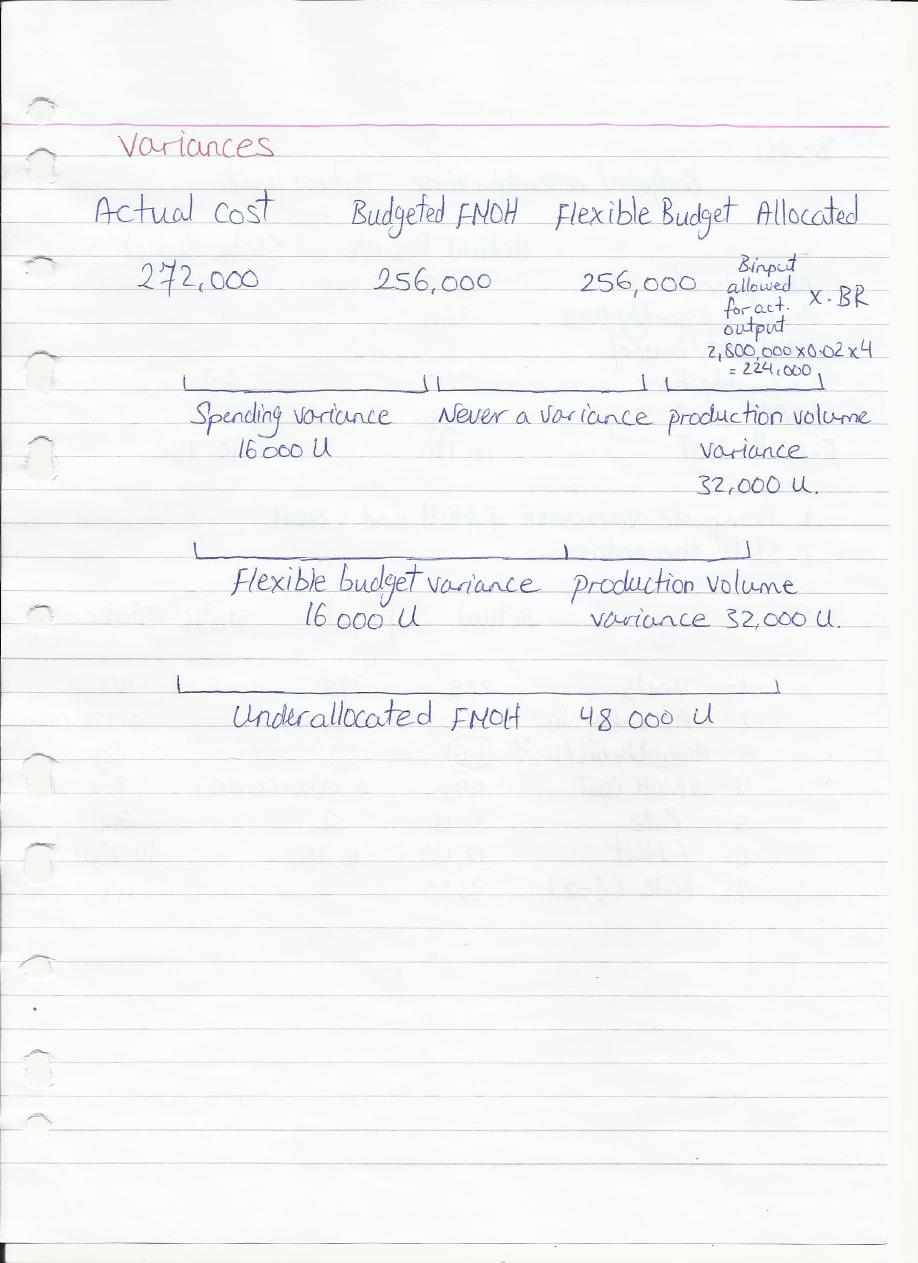 Variances
Actual Cost Budgeted FMOH Flexible Budget Allocated
272,000 256,000 256,000
B input
allowed
for act. X. BR
output
2,800,000x0.02x4
= 224,000
Spending variance Never a variance production volume
16000 U variance
32,000 U.
Flexible budget variance production volume
16 000 U variance 32,000 U.
Underallocated FMOH 48 000 U